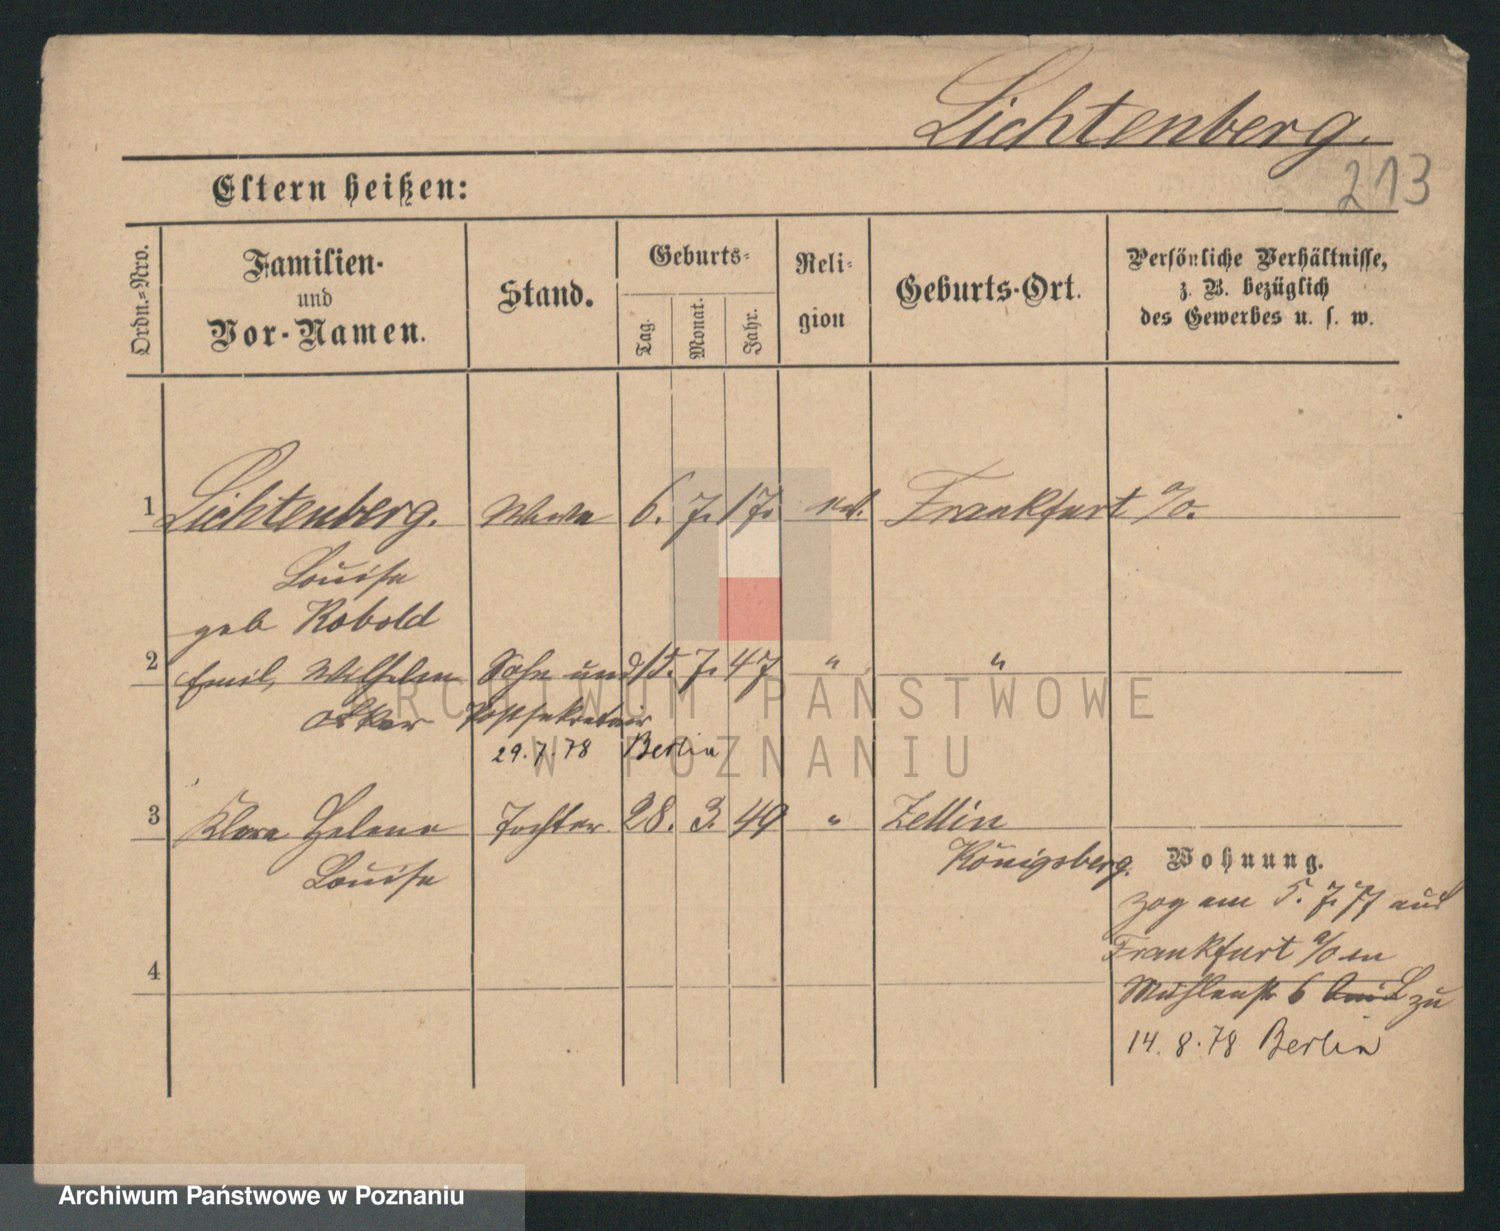 Lichtenberg.
213
Eltern heißen:
Ordn.-Nro.
Familien-
und
Vor-Namen.
Stand.
Geburts-
Tag.
Monat.
Jahr.
Reli-
gion
Geburts-Ort.
Persönliche Verhältnisse,
z. B. bezüglich
des Gewerbes u. s. w.
1 Lichtenberg. Wwe 6. 7. 17. Frankfurt a/O.
Louise
geb Robold
2 Emil, Wilhelm Sohn und 7. 47 " "
Oskar Postsekretair
29.7.78 Berlin
3 Klara Helene Tochter 28. 3. 49 " Zellin
Louise
Königsberg.
Wohnung.
zog am 5. 7. 77 aus
Frankfurt a/O in
Mühlenstr 6 zu
14. 8. 78 Berlin
4
ARCHIWUM PAŃSTWOWE
W POZNANIU
Archiwum Państwowe w Poznaniu